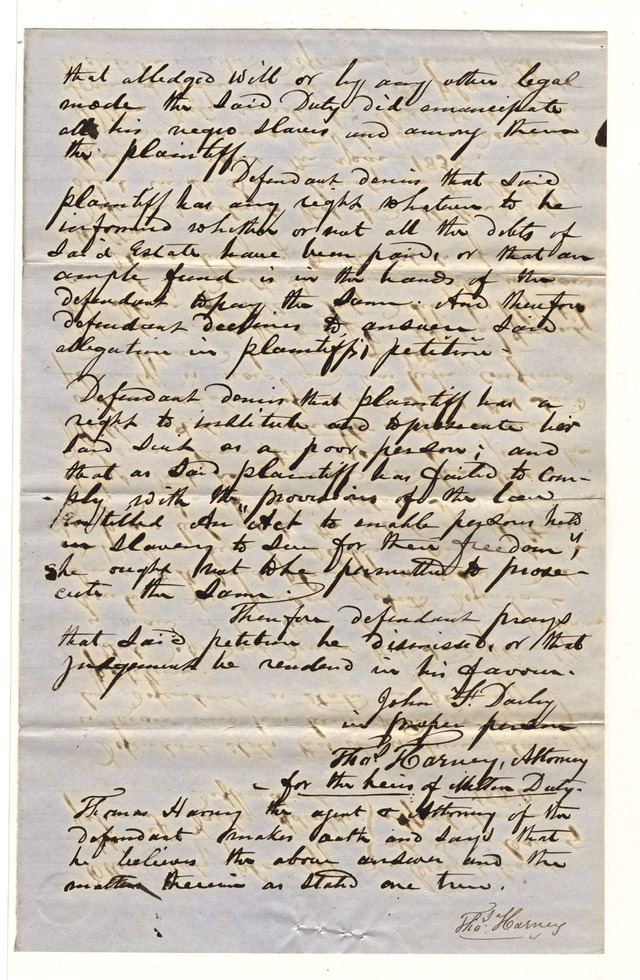 that alledged Will or by any other legal
mode the Said Duty did emancipate
all his negro Slaves and among them
the plaintiff.
Defendant denies that Said
plaintiff has any right whatever to be
informed whether or not all the debts of
Said Estate have been paid, or that an
ample fund is in the hands of the
defendant to pay the Same. And therefore
defendant declines to answer Said
allegation in plaintiff's petition-
Defendant denies that plaintiff has a
right to institute and to prosecute her
Said Suit as a poor person; and
that as Said plaintiff has failed to Com-
ply with the provisions of the law
Entitled An "Act to enable persons held
in Slavery to Sue for their freedom",
She ought not to be permitted to prose-
cute the Same.
Therefore defendant prays
that Said petition be dismissed, or that
Judgement be rendered in his favour.
John F. Darby
in proper person
Thos. Harney, Attorney
- for the heirs of Milton Duty.
Thomas Harney the agent & Attorney of the
defendant makes oath and Says that
he believes the above answer and the
matters therein as Stated are true.
Thos. Harney